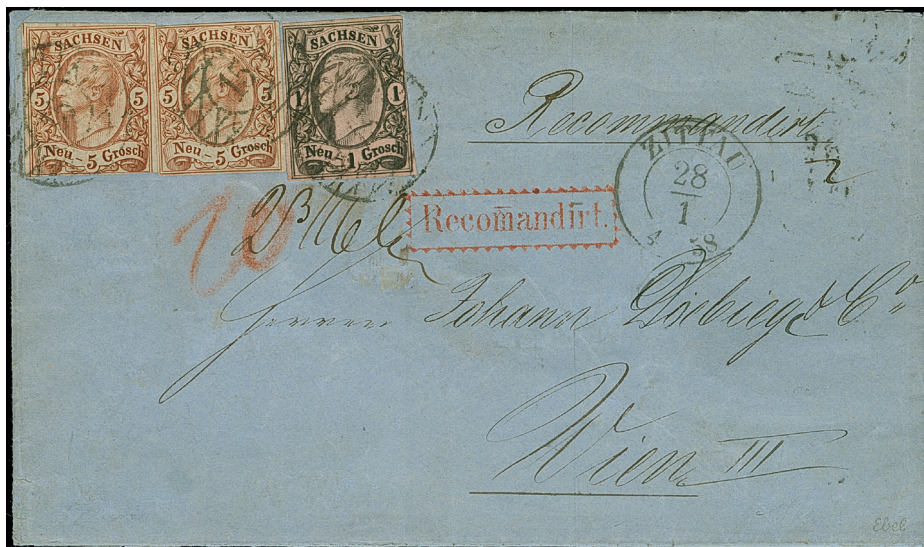 SACHSEN
5 5
Neu - 5 Grosch
SACHSEN
5 5
Neu - 5 Grosch
SACHSEN
1 1
Neu 1 Grosch
Recommandirt
ZITTAU
28
1
58
2
Recom̄andīrt.
20
Herren Johann & Co
Wien III
Ebel